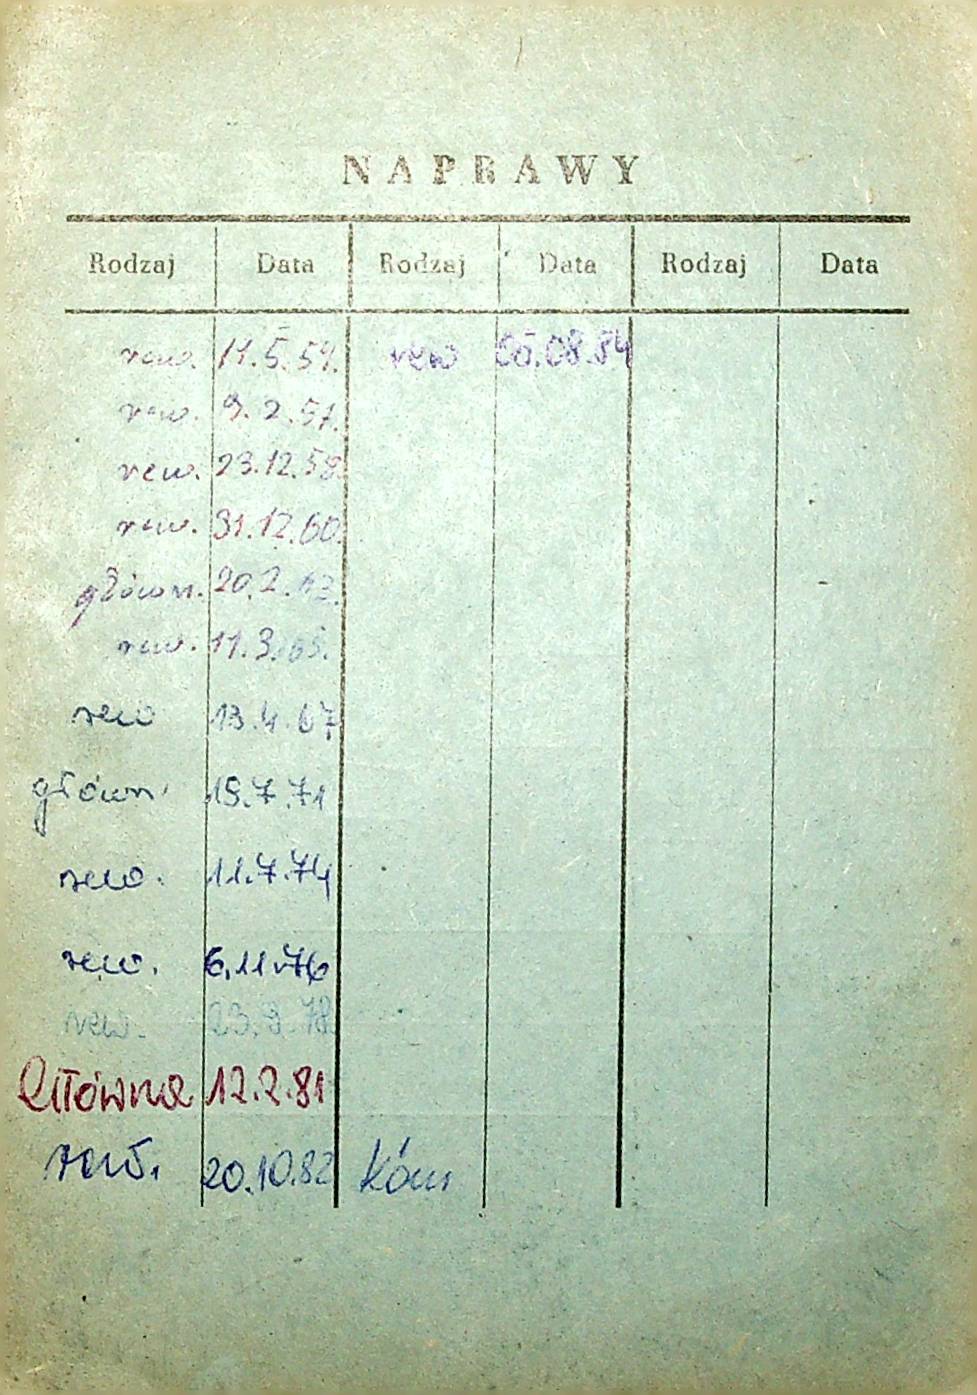 NAPRAWY
Rodzaj Data Rodzaj Data Rodzaj Data
rew. 11.5.54. rew 05.08.84
rew. 9.2.57.
rew. 23.12.58.
rew. 31.12.60.
główn. 20.2.63.
rew. 11.3.65.
rew 13.4.67
główn. 15.7.71
rew. 11.7.74
rew. 6.11.76
rew. 23.9.78
Główna 12.2.81
rew. 20.10.82